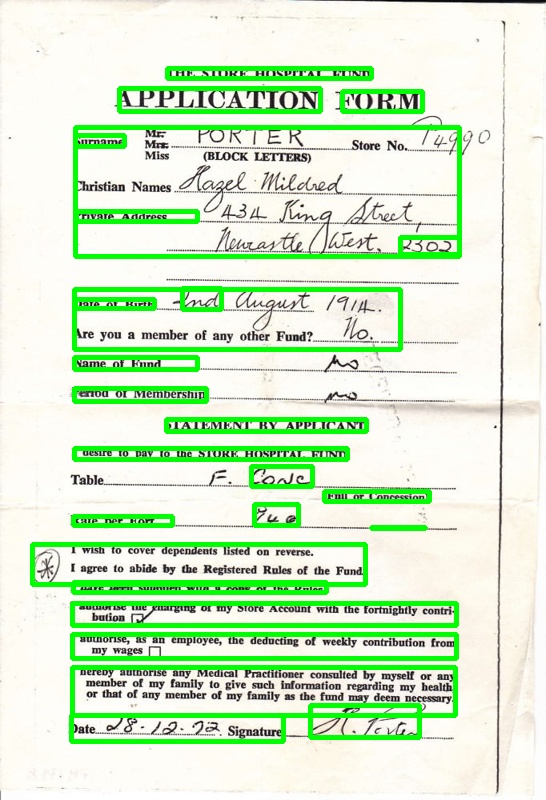 THE STORE HOSPITAL FUND
APPLICATION FORM
Surname Mr. Mrs. Miss PORTER Store No. P4990
(BLOCK LETTERS)
Christian Names Hazel Mildred
Private Address 434 King Street,
Newcastle West. 2302
Date of Birth 2nd August 1914.
Are you a member of any other Fund? No.
Name of Fund no
Period of Membership no
STATEMENT BY APPLICANT
desire to pay to the STORE HOSPITAL FUND
Table F. Conc
Full or Concession
Rate per Fort.
I wish to cover dependents listed on reverse.
I agree to abide by the Registered Rules of the Fund.
have been supplied with a copy of the Rules
authorise the charging of my Store Account with the fortnightly contri-
bution
authorise, as an employee, the deducting of weekly contribution from
my wages
hereby authorise any Medical Practitioner consulted by myself or any
member of my family to give such information regarding my health
or that of any member of my family as the fund may deem necessary.
Date 28.12.72 Signature H. Porter